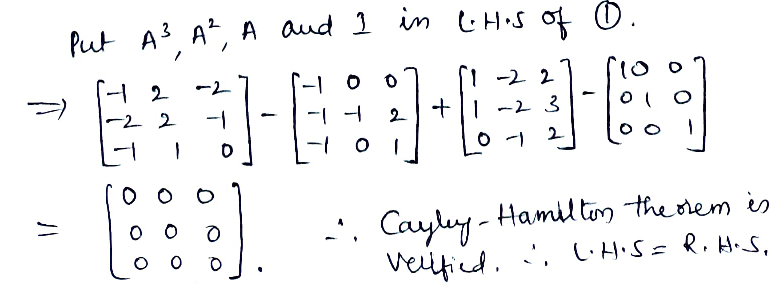 Put A³, A², A and I in L.H.S of ①.
⇒ [-1 2 -2] - [-1 0 0] + [1 -2 2] - [1 0 0]
[-2 2 -1] [-1 -1 2] [1 -2 3] [0 1 0]
[-1 1 0] [-1 0 1] [0 -1 2] [0 0 1]
= [0 0 0]
[0 0 0] ∴ Cayley-Hamilton theorem is
[0 0 0]. verified. ∴ L.H.S = R.H.S.